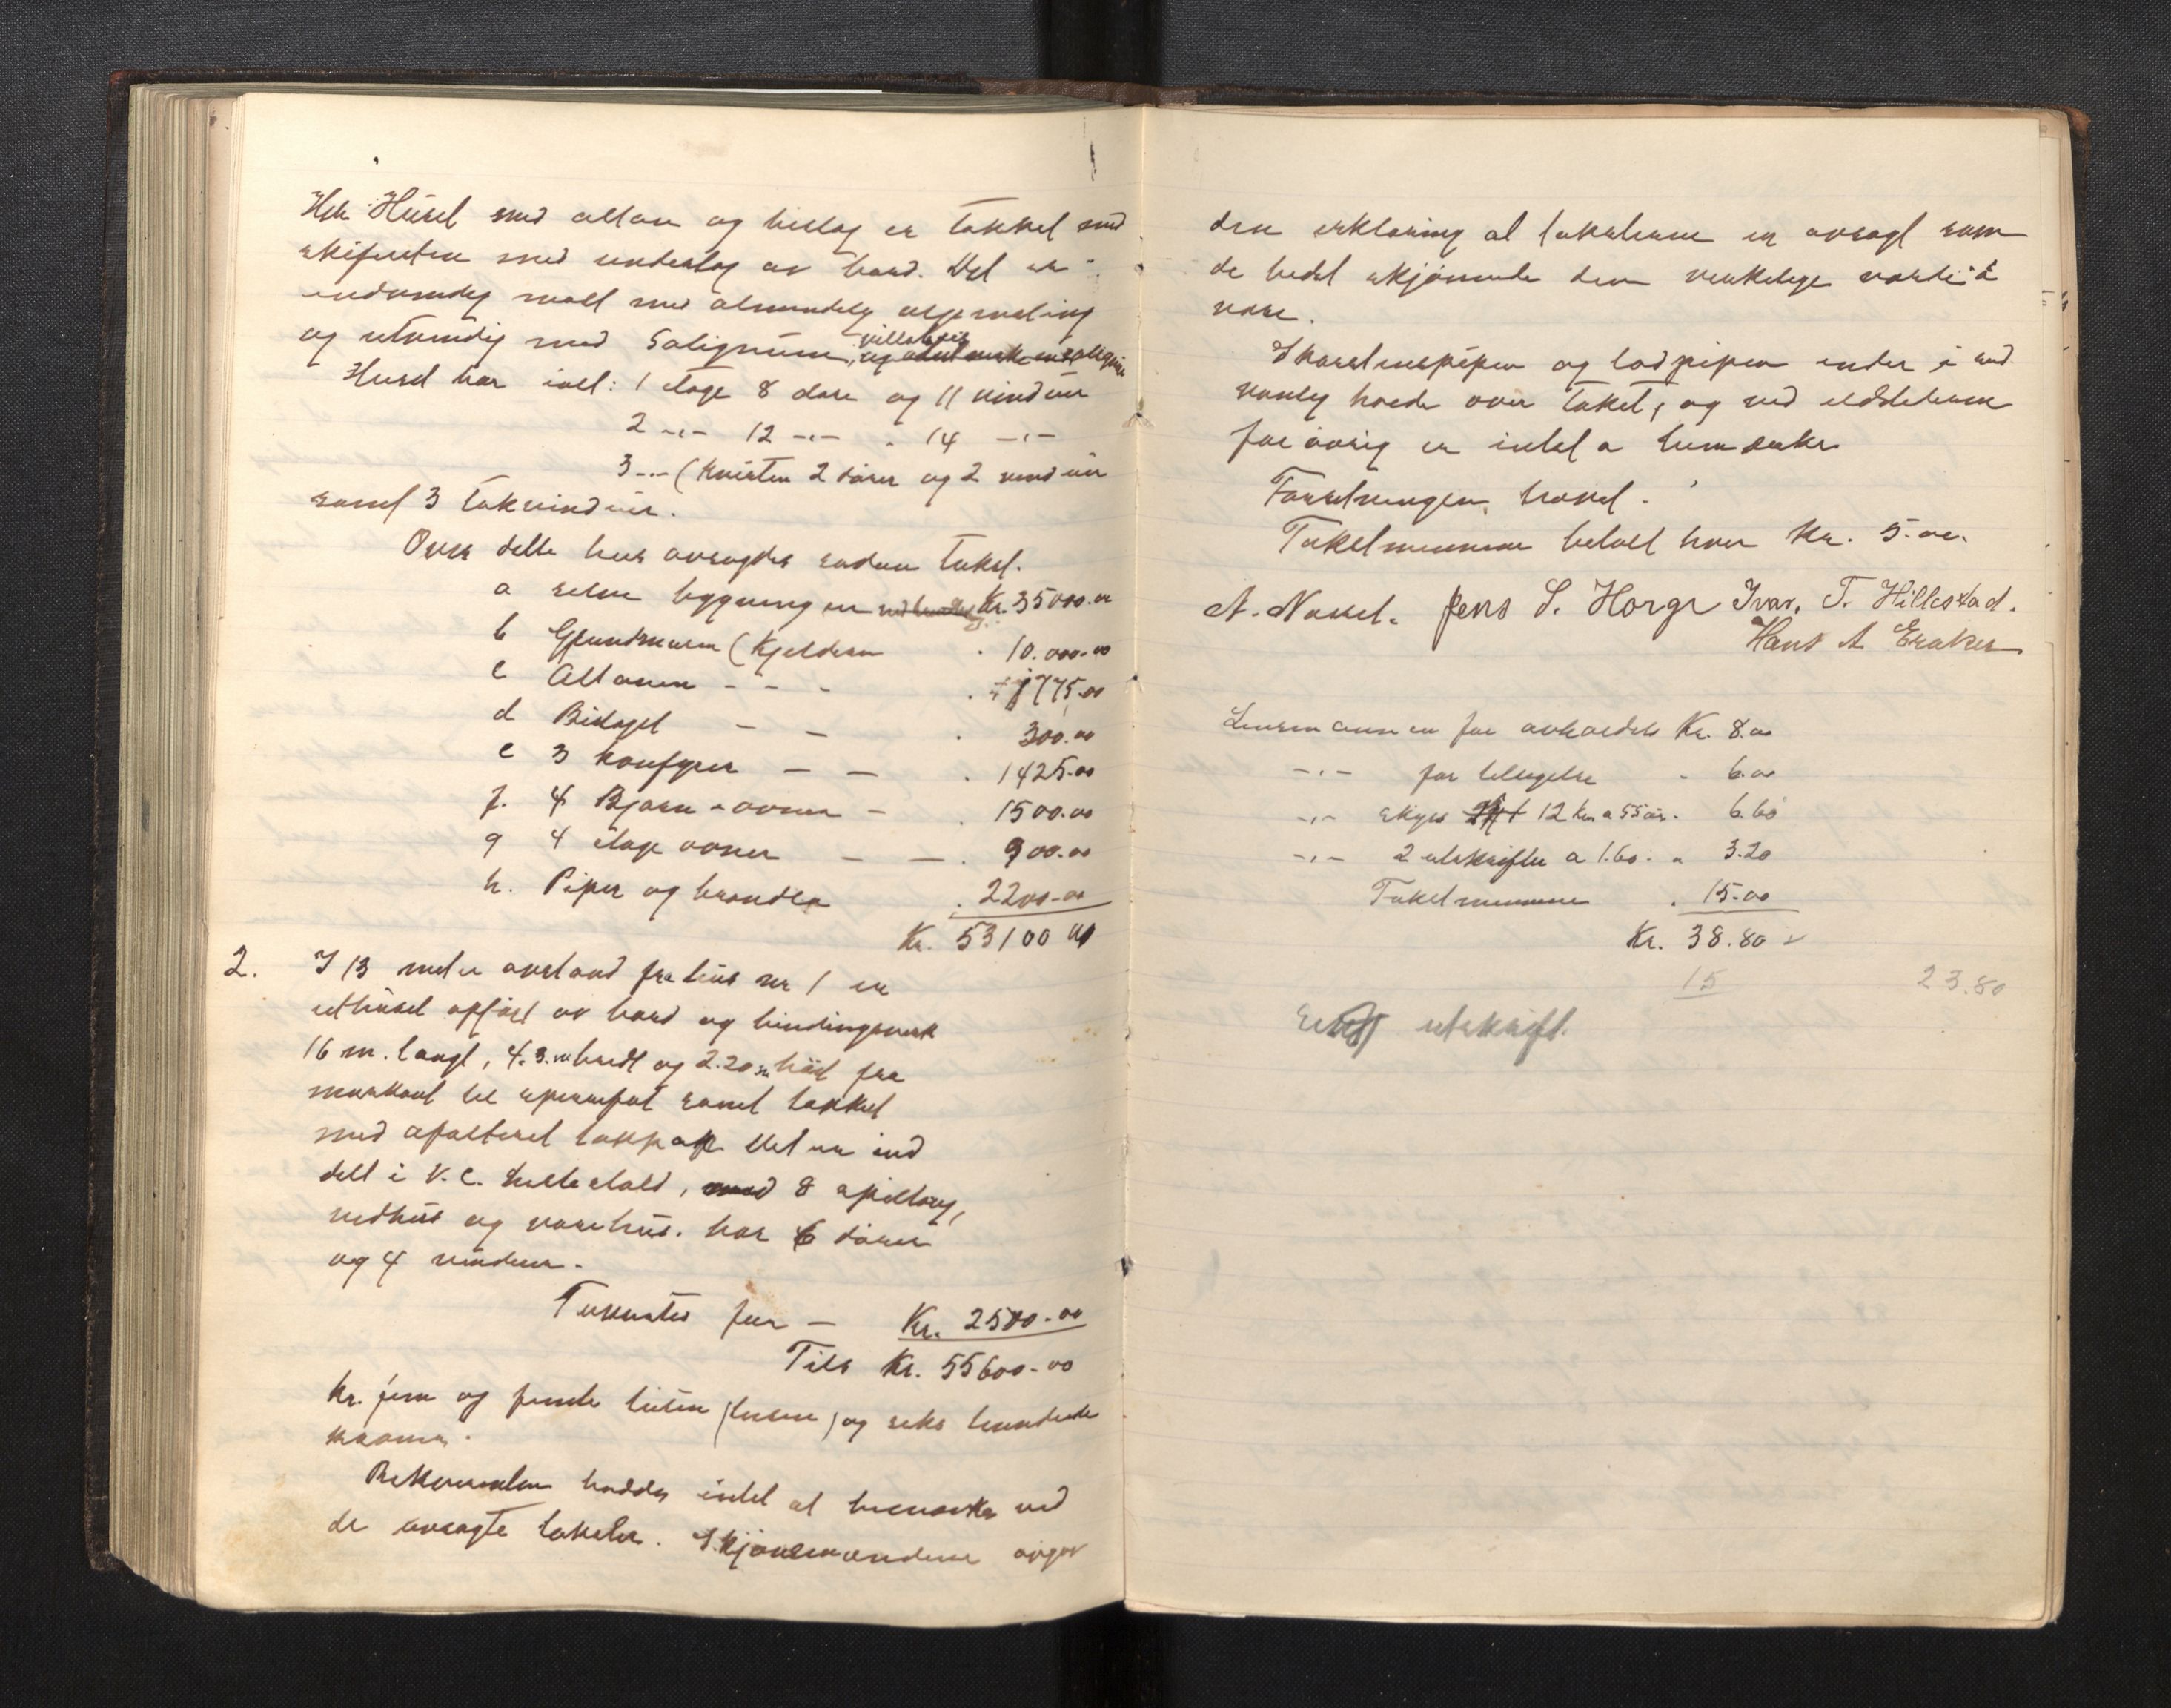 Huset med altan og bislag er takket med
skifersten med underlag av bord. Det er
indvendig malt med almindelig oljemaling
og utvendig med Solignum,
Huset har ialt: 1 etage 8 døre og 11 vinduer
2 -"- 12 -"- " 14 -"-
3 -"- (kvisten 2 dører og 2 vinduer
samt 3 takvinduer.
Over dette hus avsagdes sadan takst.
a selve bygningen Kr. 35000.00
b Grundmuren (kjelderen " 10.000.00
c Altanen - - - " 1775.00
d Bislaget - - " 300.00
e 3 komfyrer - - " 1425.00
f. 4 Bjørn-ovner - " 1500.00
g 4 etage ovner - - " 900.00
h. Piper og brandm " 2200.00
Kr. 53100 00
2. I 13 meter avstand fra hus nr 1 er
uthuset opført av bord og bindingsverk
16 m. langt, 4.3. m bredt og 2.20 m høit fra
markant til sperrefot samt takket
med asfalteret takpap. Det er ind
delt i V.C. stald, 8 spiltaug,
vedhus og varehus. har 6 dører
og 4 vinduer.
Taksertes for - Kr. 2500.00
Tils Kr. 55600.00
kr. fem og femti tusen (tusen) og seks hundrede
kroner.
Rekvirenten hadde intet at bemerke ved
de avsagte takster. Skjønsmændene avgav
den erklæring at taksterne er avsagt som
de bedst skjønnende den virkelige værdi å
være.
Skorstenspipen og lodpipen ender i sed
vanlig høide over taket, og ved ildstederne
forøvrig er intet a bemerke
Forretningen hævet.
Takstmennene betalt hver Kr. 5.00.
A. Nakel. Jens S. Horge Ivar. T. Hillestad.
Hans A Eraker
Lensmannen for avholdelse Kr. 8.00
-"- for tilsigelse " 6.00
-"- skyss 12 km a 55 øre. 6.60
-"- 2 utskrifter a 1.60. " 3.20
Takstmennene " 15.00
Kr. 38.80
15 23.80
utskrift.